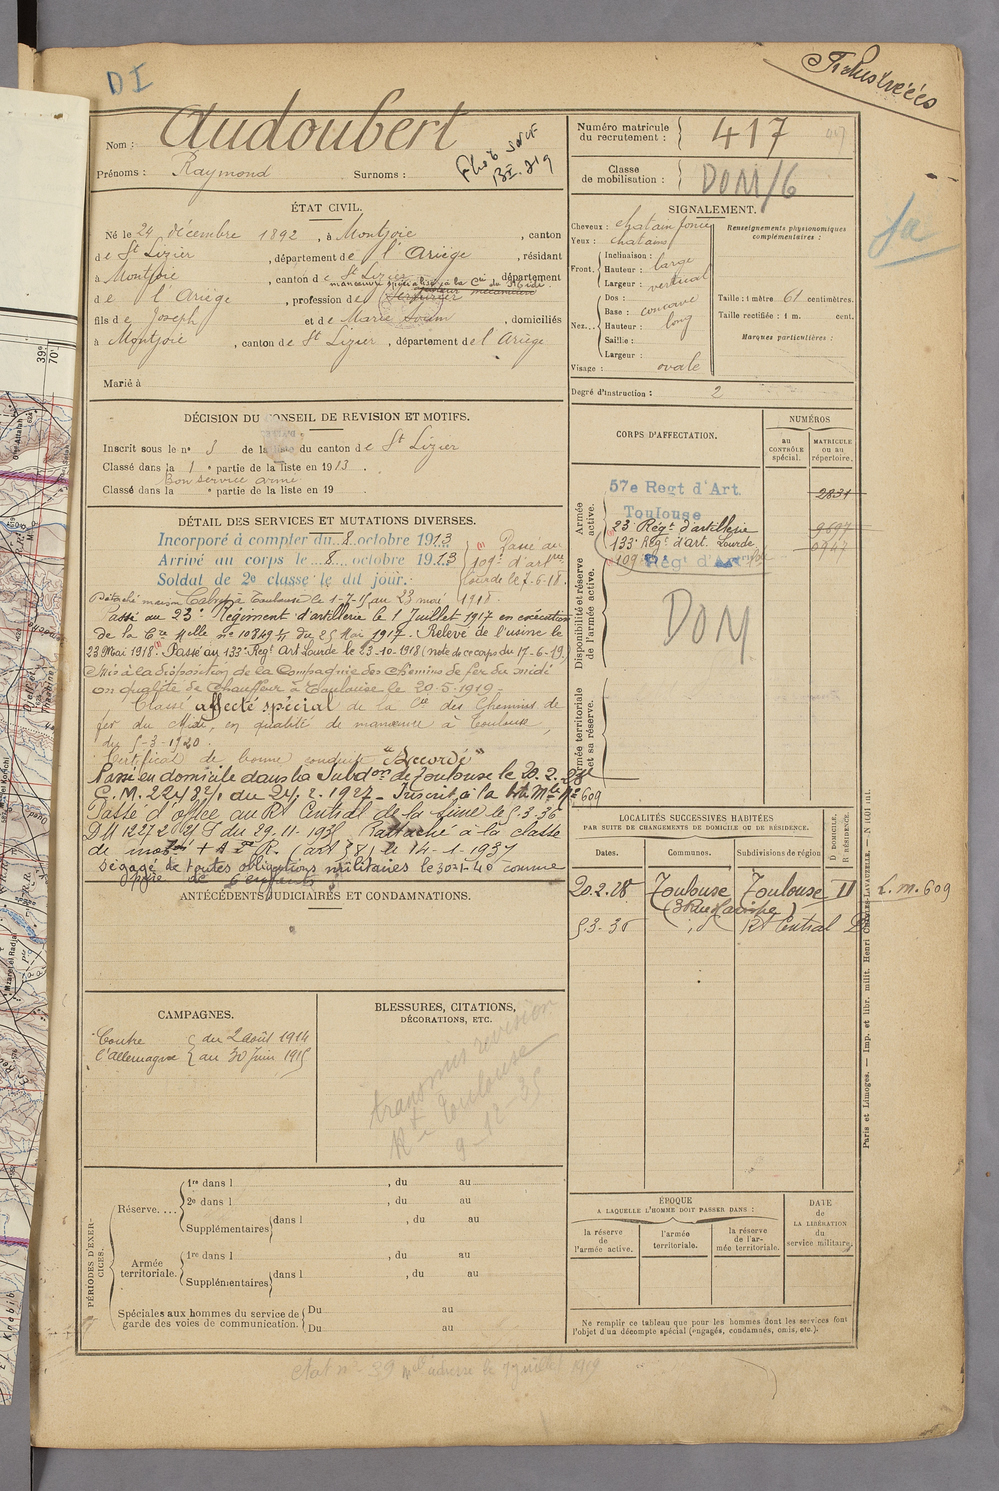 DI
Nom : Audoubert
Prénoms : Raymond Surnoms :
Numéro matricule du recrutement : 417
Classe de mobilisation : DOM/6
ÉTAT CIVIL.
Né le 24 décembre 1892, à Montjoie, canton
de St Lizier, département de l'Ariège, résidant
à Montjoie, canton de St Lizier, département
manœuvre spécialisé à la Cie du Midi
de l'Ariège, profession de Serrurier mécanicien
fils de Joseph et de Marie Soum, domiciliés
à Montjoie, canton de St Lizier, département de l'Ariège
Marié à
SIGNALEMENT.
Cheveux : chatain foncé
Yeux : chatains
Front. Inclinaison :
Hauteur : large
Largeur : vertical
Nez... Dos :
Base : concave
Hauteur : long
Saillie :
Largeur :
Visage : ovale
Renseignements physionomiques complémentaires :
Taille : 1 mètre 61 centimètres.
Taille rectifiée : 1 m. cent.
Marques particulières :
Degré d'instruction : 2
DÉCISION DU CONSEIL DE REVISION ET MOTIFS.
Inscrit sous le n° de la liste du canton de St Lizier
Classé dans la 1e partie de la liste en 1913.
Bon service armé
Classé dans la e partie de la liste en 19
DÉTAIL DES SERVICES ET MUTATIONS DIVERSES.
Incorporé à compter du 8 octobre 1913
Arrivé au corps le 8 octobre 1913
Soldat de 2e classe le dit jour.
Passé au
109e d'artrie
Lourde le 7-6-18.
Détaché maison à Toulouse le 1-7-15 au 23 mai 1918.
Passé au 23e Régiment d'artillerie le 1 Juillet 1917 en exécution
de la Cre Melle n° 10849 du 25 Mai 1917. Relevé de l'usine le
23 Mai 1918. Passé au 133e Regt Art Lourde le 23-10-1918 (note de ce corps du 17-6-19.)
Mis à la disposition de la Compagnie des chemins de fer du midi
en qualité de Chauffeur à Toulouse le 20-5-1919.
Classé affecté spécial de la Cie des Chemins de
fer du Midi, en qualité de manœuvre à Toulouse,
du 5-3-1920.
Certificat de bonne conduite "Accordé"
Passé en domicile dans la Subdon de Toulouse le 20.2.28
C.M. 22482/1 du 24.2.1927 - Inscrit à la Mle N° 609
Passé d'office au Rt Central de la Seine le 5.3.36
DM 12272 du 29-11-1935. Rattaché à la classe
de (art 58) le 14-1-1937
Dégagé de toutes obligations militaires le 30-1-40 comme
père de enfants
CORPS D'AFFECTATION.
NUMÉROS
au CONTRÔLE spécial.
MATRICULE ou au répertoire.
Armée active.
57e Regt d'Art.
Toulouse
2831
23e Régt d'artillerie
133e Régt d'art. Lourde
109e Régt d'Art
Disponibilité et réserve de l'armée active.
DOM
Armée territoriale et sa réserve.
LOCALITÉS SUCCESSIVES HABITÉES
PAR SUITE DE CHANGEMENTS DE DOMICILE OU DE RÉSIDENCE.
Dates. Communes. Subdivisions de région. D. DOMICILE. R. RÉSIDENCE.
20-2-28 Toulouse Toulouse D L.m. 609
Rt Central D
ANTÉCÉDENTS JUDICIAIRES ET CONDAMNATIONS.
CAMPAGNES.
Contre l'Allemagne
du 2 août 1914
au 30 Juin 1915
BLESSURES, CITATIONS,
DÉCORATIONS, ETC.
transmis revision
Rt Toulouse
9-12-35
PÉRIODES D'EXERCICES.
Réserve....
1re dans l , du au
2e dans l , du au
Supplémentaires dans l , du au
Armée territoriale.
1re dans l , du au
Supplémentaires dans l , du au
Spéciales aux hommes du service de garde des voies de communication.
Du au
Du au
ÉPOQUE
A LAQUELLE L'HOMME DOIT PASSER DANS :
la réserve de l'armée active.
l'armée territoriale.
la réserve de l'armée territoriale.
DATE de LA LIBÉRATION du service militaire.
Ne remplir ce tableau que pour les hommes dont les services font
l'objet d'un décompte spécial (engagés, condamnés, omis, etc.).
Paris et Limoges. — Imp. et libr. milit. Henri CHARLES-LAVAUZELLE.